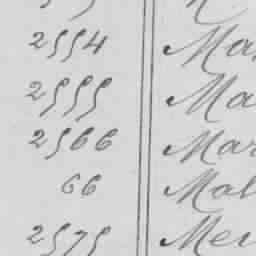 2554 Mar
2555 Ma
2566 Mar
66 Mal
2575 Mer